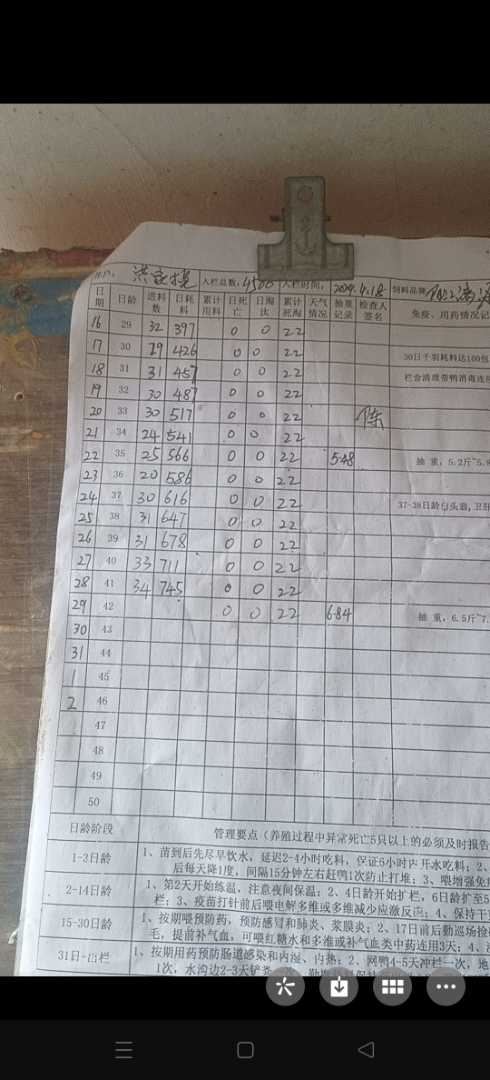 入栏总数: 4500 入栏时间: 饲料品牌
日期 日龄 进料数 日耗料 累计用料 日死亡 日淘汰 累计死淘 天气情况 抽重记录 检查人签名 免疫、用药情况记
16 29 32 397 0 0 22
17 30 29 426 0 0 22 30日千羽耗料达100包
18 31 31 457 0 0 22
19 32 30 487 0 0 22
20 33 30 517 0 0 22 陈
21 34 24 541 0 0 22
22 35 25 566 0 0 22 5.48 抽 重, 5.2斤~5.8
23 36 20 586 0 0 22
24 37 30 616 0 0 22
25 38 31 647 0 0 22
26 39 31 678 0 0 22
27 40 33 711 0 0 22
28 41 34 745 0 0 22
29 42 0 0 22 6.84 抽 重, 6.5斤~7.
30 43
31 44
1 45
2 46
47
48
49
50
日龄阶段 管理要点(养殖过程中异常死亡5只以上的必须及时报告
1-3日龄 1、苗到后先尽早饮水, 延迟2-4小时吃料, 保证5小时内开水吃料; 2、
后每天降1度, 间隔15分钟左右赶鸭1次防止打堆; 3、喂增强免
2-14日龄 1、第2天开始练温, 注意夜间保温; 2、4日龄开始扩栏, 6日龄扩至5
栏; 3、疫苗打针前后喂电解多维或多维减少应激反应; 4、保持干
15-30日龄 1、按期喂预防药, 预防感冒和肺炎、浆膜炎; 2、17日前后勤巡场
毛, 提前补气血, 可喂红糖水和多维或补气血类中药连用3天; 4、
31日-出栏 1、按期用药预防肠道感染和内湿、内热; 2、网鸭4-5天冲栏一次, 地
1次, 水沟边2-3天铲粪